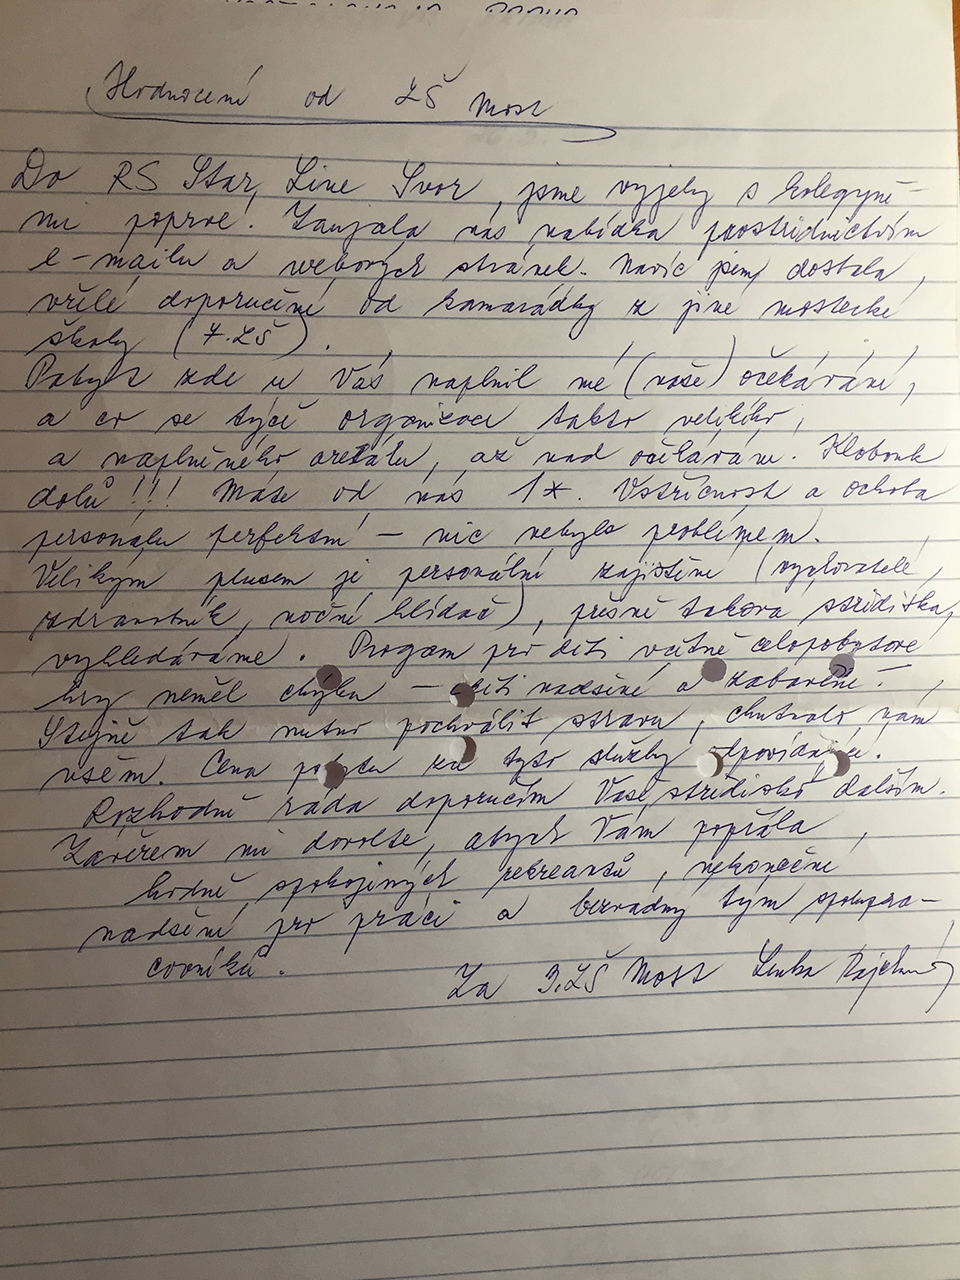 Hodnocení od ZŠ Most
Do RS Star Line Svor, jsme vyjely s kolegyně-
mi poprvé. Zaujala nás nabídka prostřednictvím
e-mailu a webových stránek. Navíc jsem dostala
vřelé doporučení od kamarádky z jiné mostecké
školy (7.ZŠ).
Pobyt zde u Vás naplnil mé (naše) očekávání,
a co se týče organizace takto velikého,
a naplněného areálu, až nad očekávání. Klobouk
dolů!!! Máte od nás 1*. Vstřícnost a ochota
personálu perfektní – nic nebylo problémem.
Velikým plusem je personální zajištění (vychovatelé,
zdravotník, noční hlídač), přesně taková střediska
vyhledáváme. Program pro děti včetně celopobytové
hry neměl chybu – děti nadšené a zabavené.
Stejně tak nutno pochválit stravu, chutnalo nám
všem. Cena pobytu za tyto služby odpovídající.
Rozhodně ráda doporučím Vaše středisko dalším.
Závěrem mi dovolte, abych Vám popřála
hodně spokojených rekreantů, nekonečné
nadšení pro práci a bezvadný tým spolupra-
covníků.
Za 3.ZŠ Most Lenka